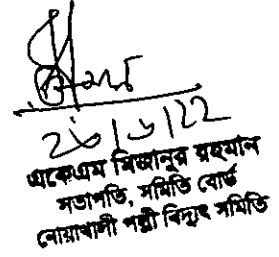 ২৬/৬/২২
একেএম মিজানুর রহমান
সভাপতি, সমিতি বোর্ড
নোয়াখালী পল্লী বিদ্যুৎ সমিতি